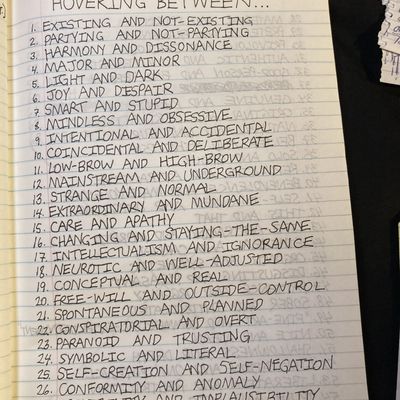 HOVERING BETWEEN...
1. EXISTING AND NOT-EXISTING
2. PARTYING AND NOT-PARTYING
3. HARMONY AND DISSONANCE
4. MAJOR AND MINOR
5. LIGHT AND DARK
6. JOY AND DESPAIR
7. SMART AND STUPID
8. MINDLESS AND OBSESSIVE
9. INTENTIONAL AND ACCIDENTAL
10. COINCIDENTAL AND DELIBERATE
11. LOW-BROW AND HIGH-BROW
12. MAINSTREAM AND UNDERGROUND
13. STRANGE AND NORMAL
14. EXTRAORDINARY AND MUNDANE
15. CARE AND APATHY
16. CHANGING AND STAYING-THE-SAME
17. INTELLECTUALISM AND IGNORANCE
18. NEUROTIC AND WELL-ADJUSTED
19. CONCEPTUAL AND REAL
20. FREE-WILL AND OUTSIDE-CONTROL
21. SPONTANEOUS AND PLANNED
22. CONSPIRATORIAL AND OVERT
23. PARANOID AND TRUSTING
24. SYMBOLIC AND LITERAL
25. SELF-CREATION AND SELF-NEGATION
26. CONFORMITY AND ANOMALY
AND IMPLAUSIBILITY